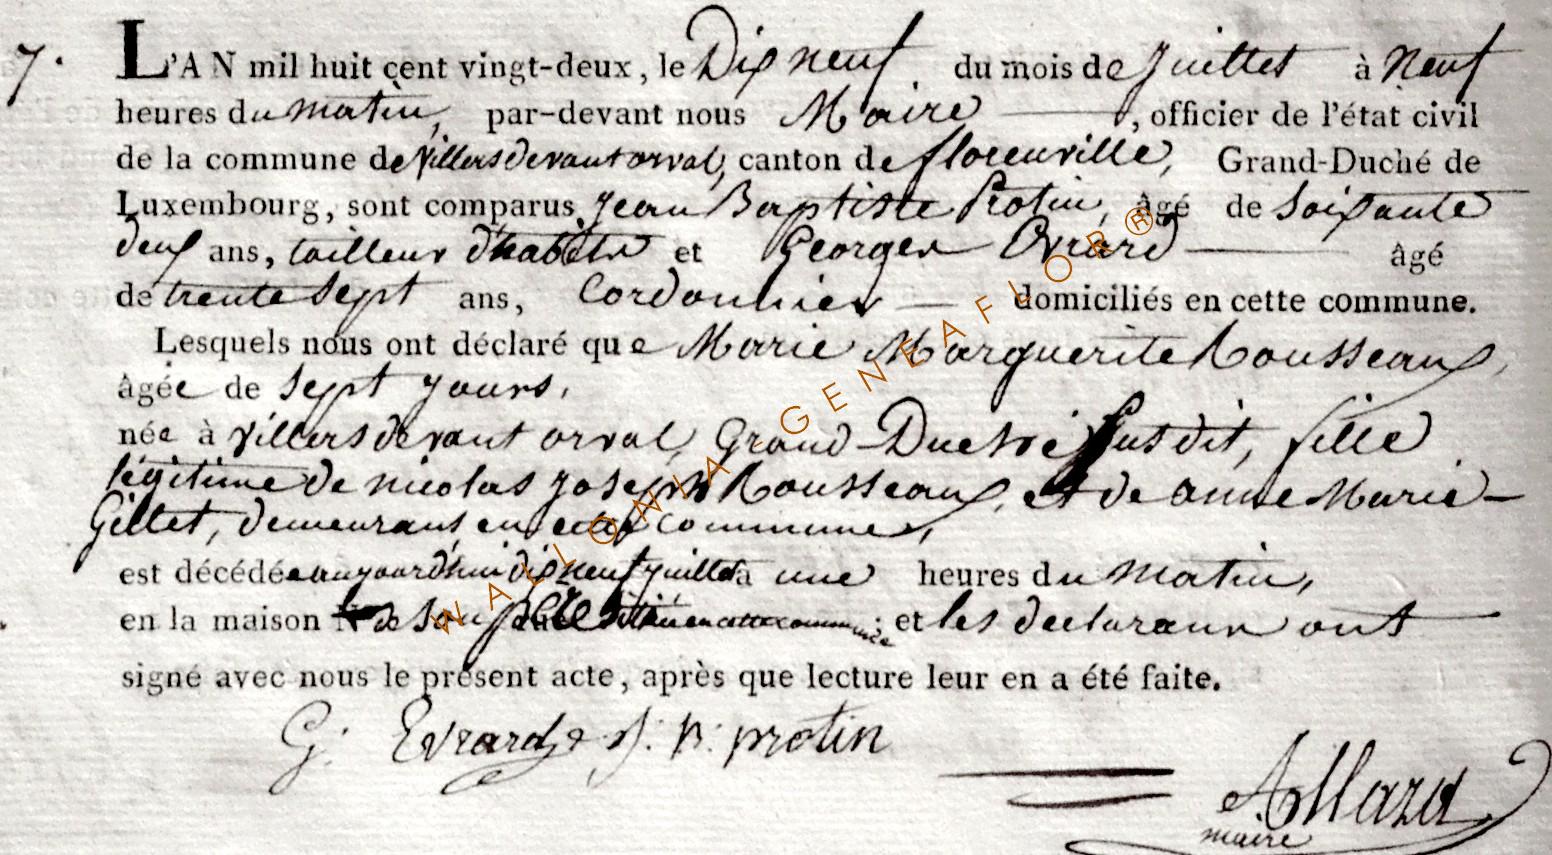 7.
L'AN mil huit cent vingt-deux, le Dix neuf du mois de Juillet à neuf
heures du matin, par-devant nous Maire, officier de l'état civil
de la commune de Villers devant orval, canton de florenville, Grand-Duché de
Luxembourg, sont comparus Jean Baptiste Protin, âgé de Soixante
deux ans, tailleur d'habits et Georges Evrard âgé
de trente sept ans, Cordonnier domiciliés en cette commune.
Lesquels nous ont déclaré que Marie Marguerite Rousseaux,
âgée de sept jours,
née à Villers devant orval, Grand-Duché susdit, fille
légitime de nicolas Joseph Rousseaux, et de anne Marie
Gillet, demeurans en cette commune,
est décédée aujourd'hui dix neuf juillet à une heures du matin,
en la maison de son père située en cette commune; et les declarans ont
signé avec nous le présent acte, après que lecture leur en a été faite.
G. Evrard J. B. protin
Allard
maire
WALLONIA - GENEAFLOR ®